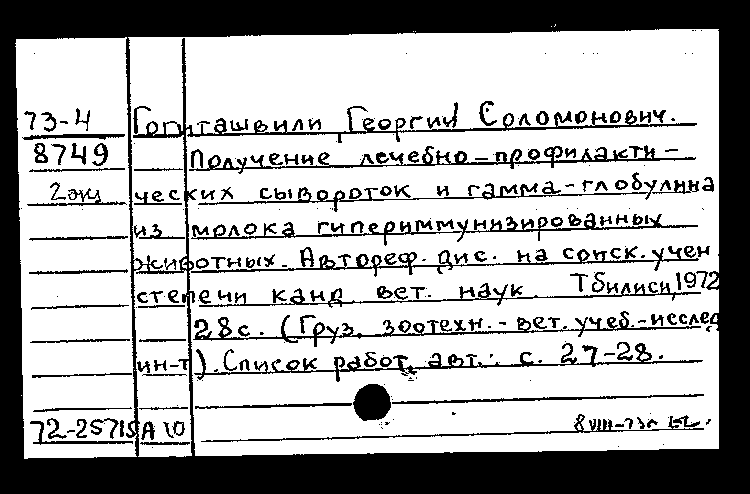 73-4 Гогиташвили, Георгий Соломонович.
8749 Получение лечебно-профилакти-
2 экз ческих сывороток и гамма-глобулина
из молока гипериммунизированных
животных. Автореф. дис. на соиск. учен.
степени канд вет. наук. Тбилиси, 1972
28 с. (Груз. зоотехн.-вет. учеб.-исслед
ин-т). Список работ. авт.: с. 27-28.
72-25715 А Ю 8 VIII-73